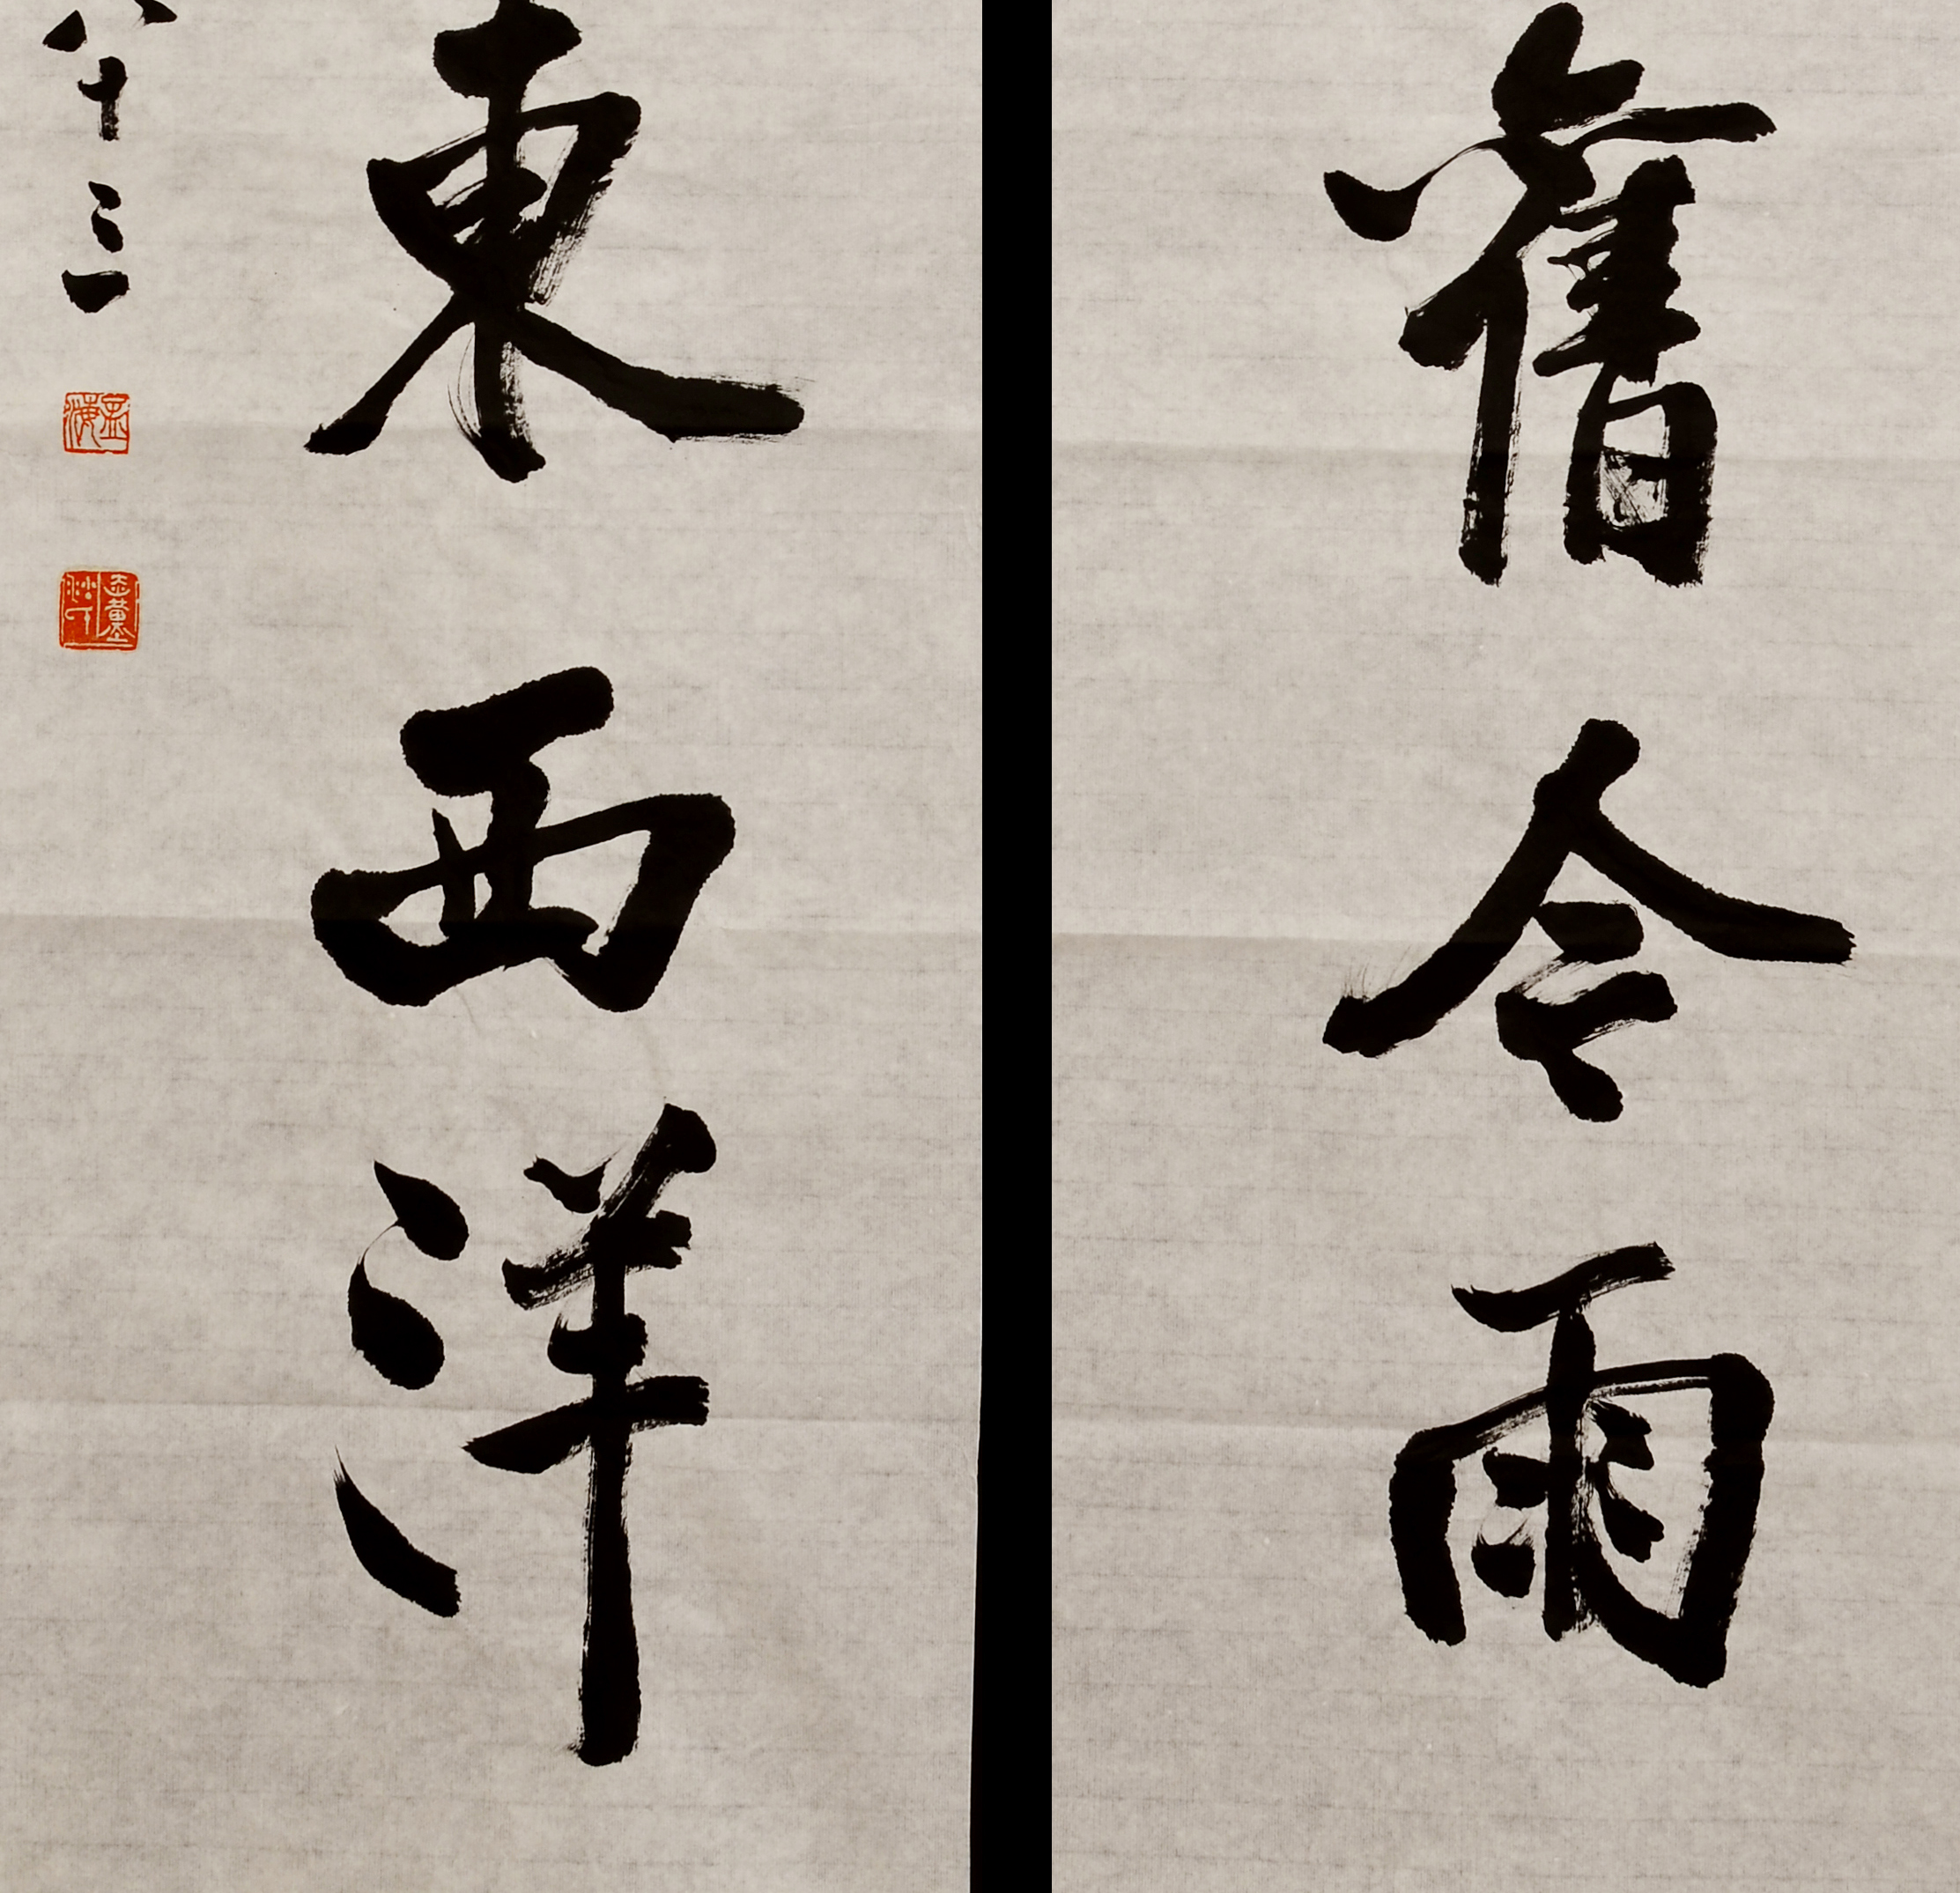 舊今雨
東西洋
八十三